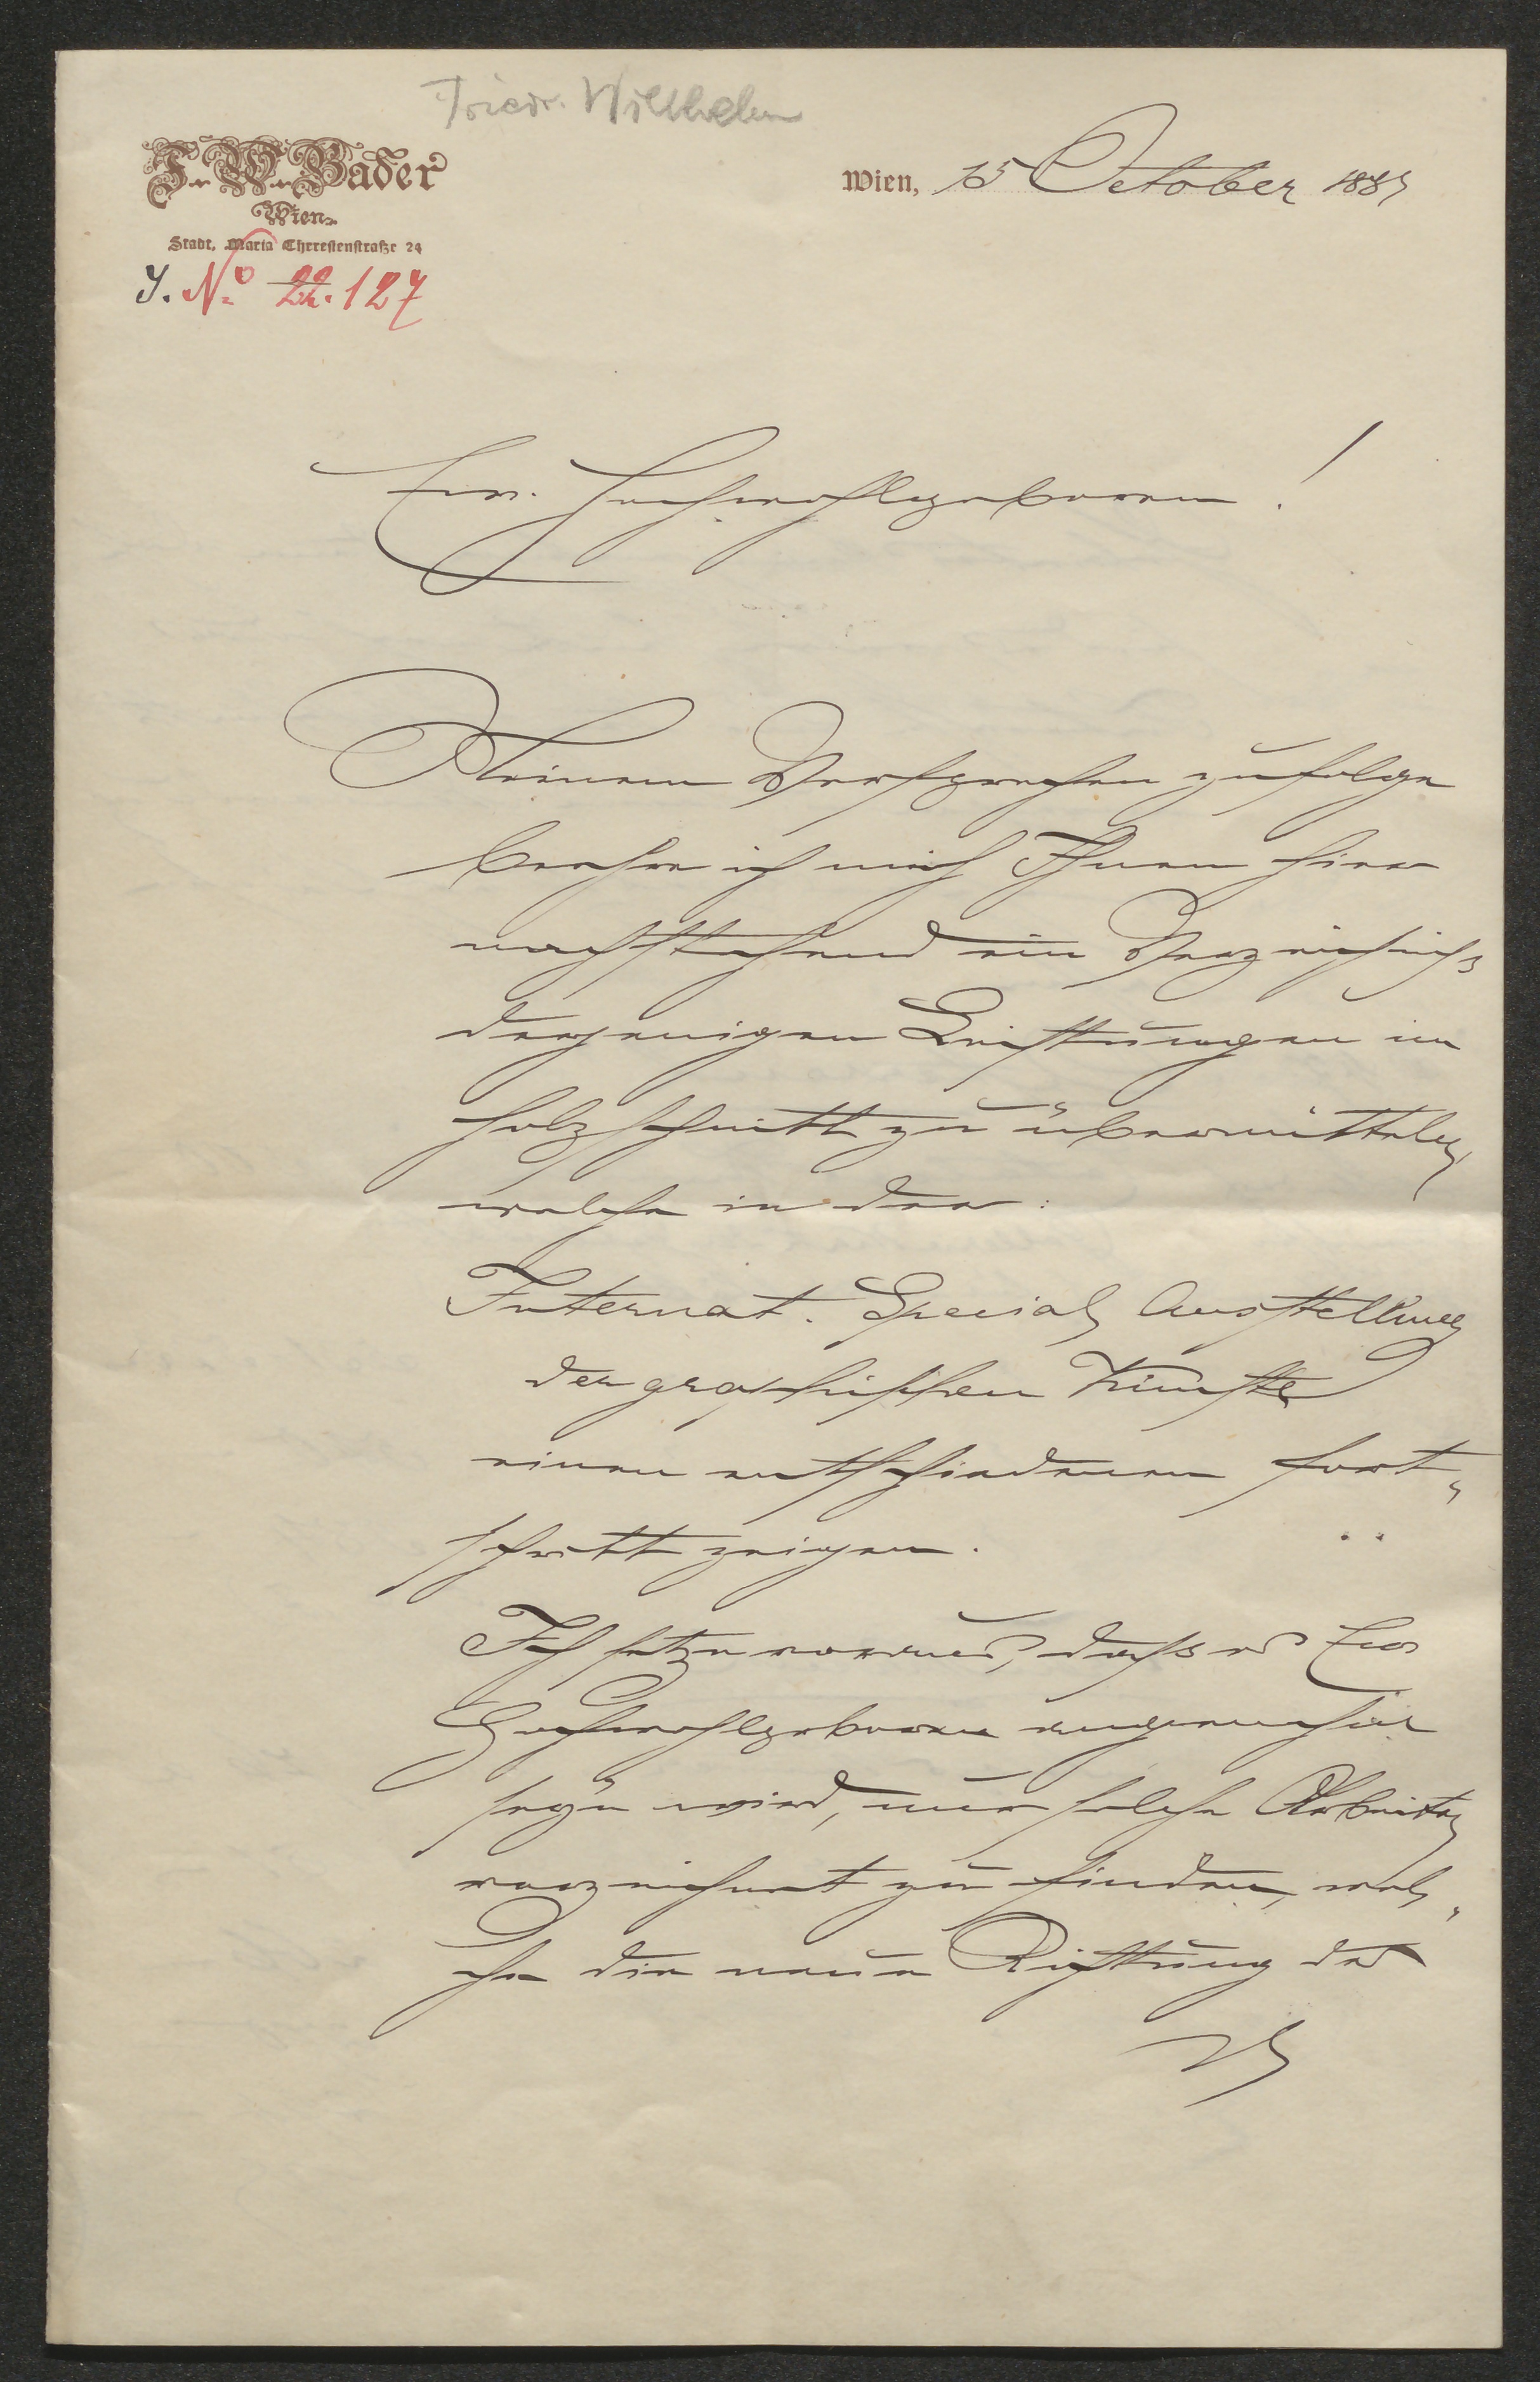 Friedr. Wilhelm
F. W. Bader
Wien.
Stadt, Maria Theresienstraße 24
Wien, 15 October 1883
J. No 22.127
Ew. Hochwohlgeboren!
Meinem Versprechen zufolge
beehre ich mich Ihnen hier
nachstehend ein Verzeichnis
derjenigen Leistungen im
Holzschnitt zu übermitteln,
welche in der:
Internat. Special Ausstellung
der graphischen Künste
einen entschiedenen Fort„
schritt zeigen.
Ich setze voraus, dass es Euer
Hochwohlgeboren angenehm
seyn wird, nur solche Arbeiten
verzeichnet zu finden, wel„
che die neue Richtung des